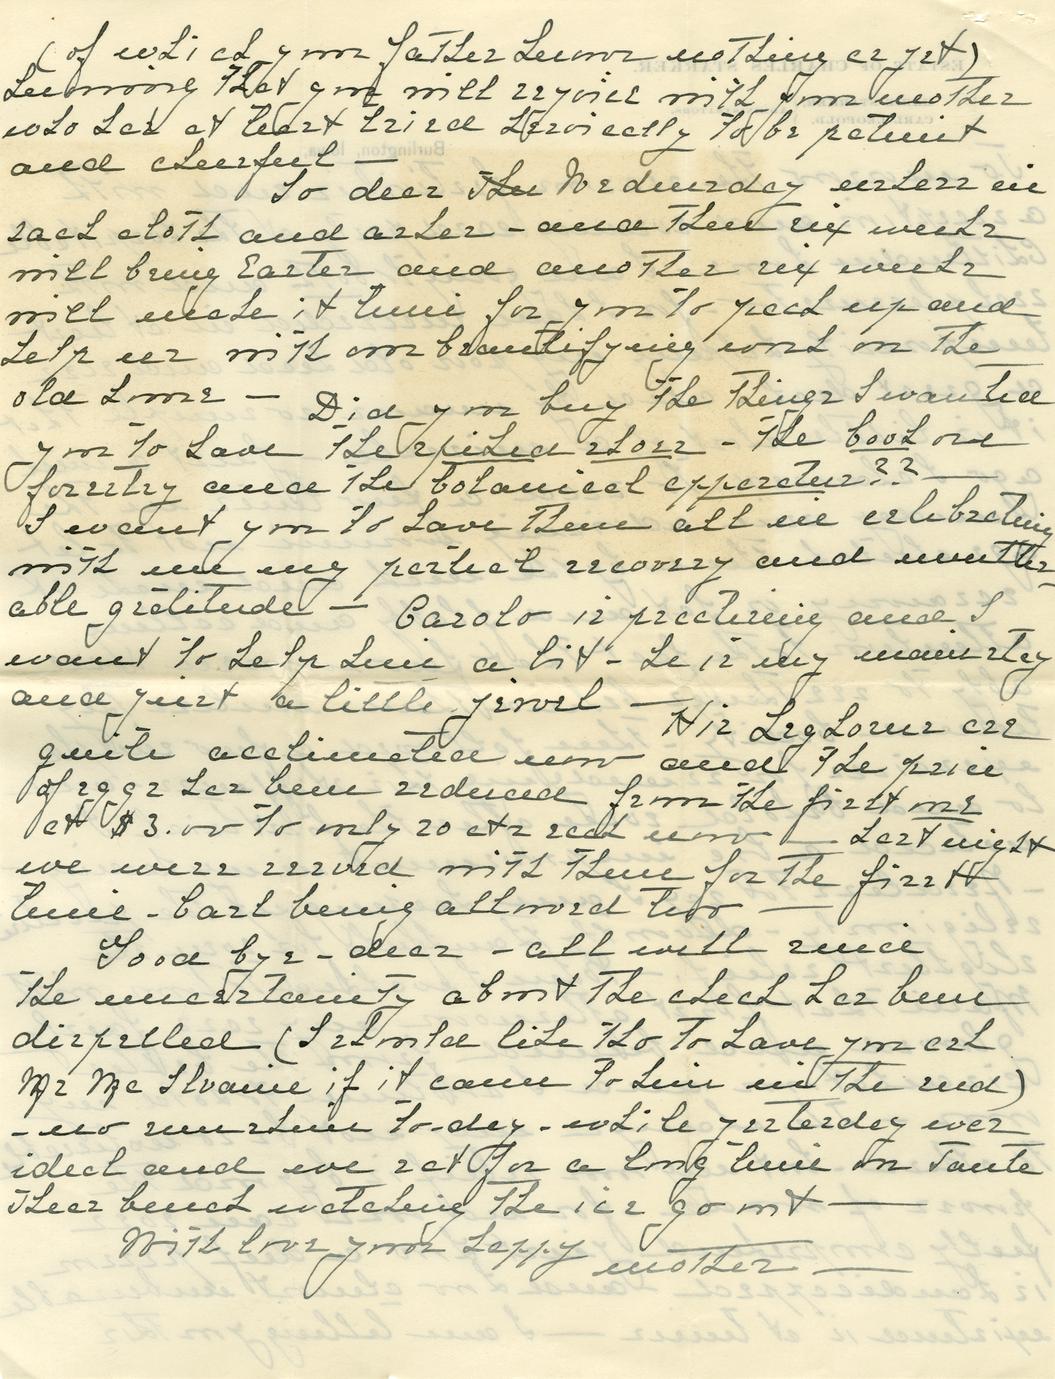 (of which your father knows nothing as yet)
knowing that you will rejoice with your mother
who has at least tried heroically to be patient
and cheerful —
So dear the Wednesday unless in
sack cloth and ashes - and then six weeks
will bring Easter and another six weeks
will make it time for you to pack up and
help us with our beautifying work on the
old home — Did you buy the things I wanted
you to have the spiked shoes - the book on
forestry and the botanical apparatus?? —
I want you to have them all in celebrating
with me my perfect recovery and unutter-
able gratitude — Carolo is practising and I
want to help him a bit - he is my mainstay
and just a little jewel — His Leghorns are
quite acclimated now and the price
of eggs has been reduced from the first one
at $3.00 to only 20 cts each now — Last night
we were served with them for the first
time - Carl being allowed two —
Good bye - dear - all well since
the uncertainty about the check has been
dispelled (I should like tho to have you ask
Mr McIlvaine if it came to him in the end)
- no sunshine to-day - while yesterday was
ideal and we sat for a long time on Tante
Theas bench watching the ice go out —
With love your happy mother —